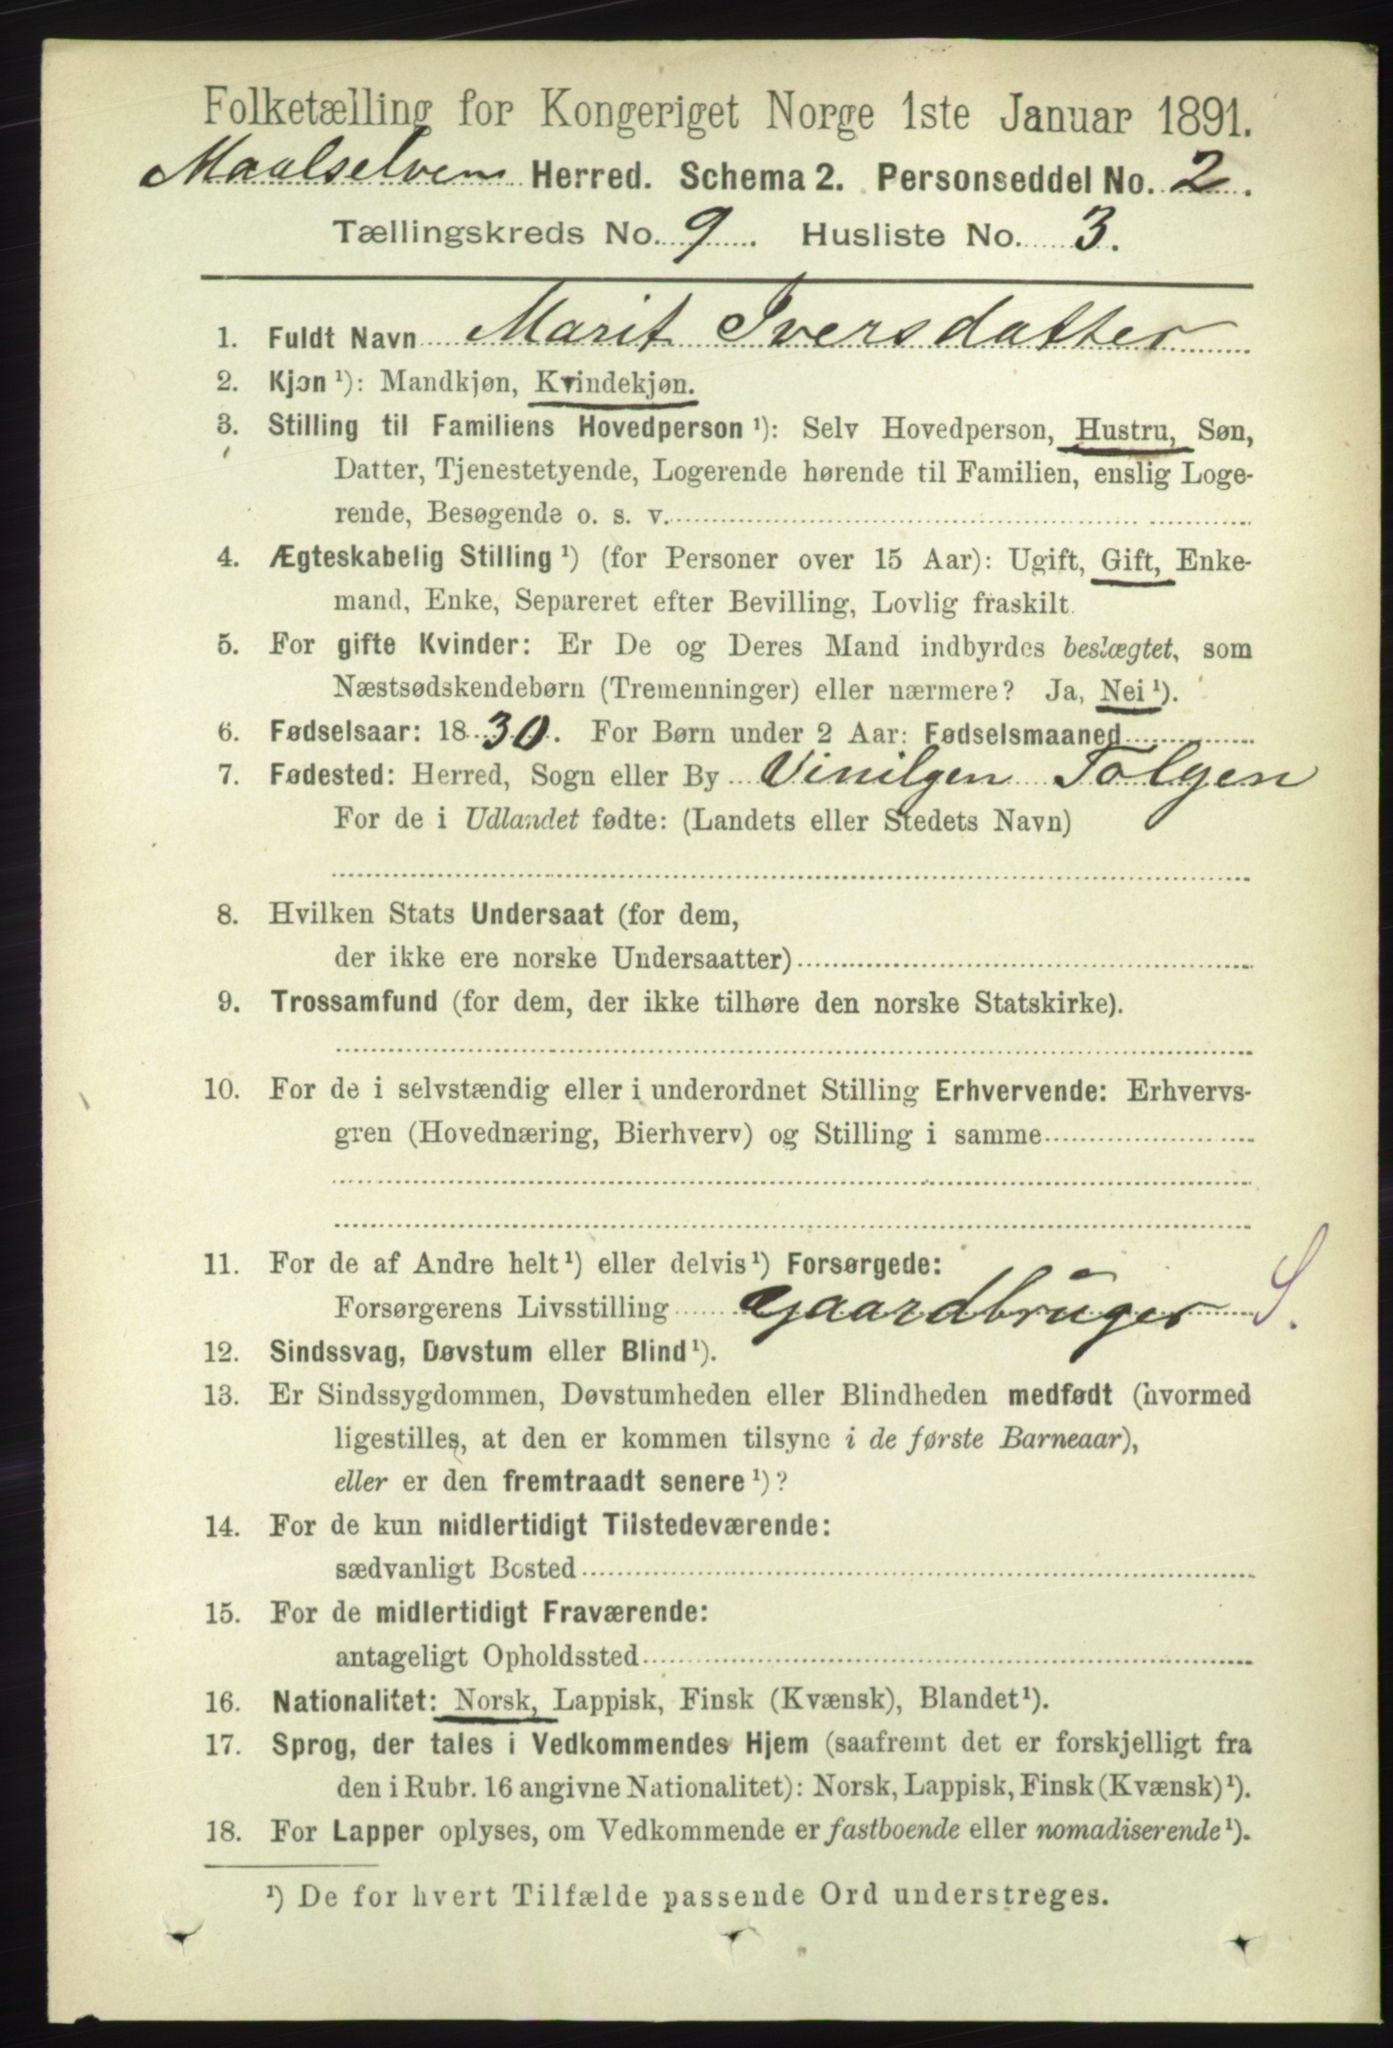 Folketælling for Kongeriget Norge 1ste Januar 1891.
Maalselvens Herred. Schema 2. Personseddel No. 2.
Tællingskreds No. 9. Husliste No. 3.
1. Fuldt Navn Marit Iversdatter
2. Kjøn ¹): Mandkjøn, Kvindekjøn.
3. Stilling til Familiens Hovedperson ¹): Selv Hovedperson, Hustru, Søn,
Datter, Tjenestetyende, Logerende hørende til Familien, enslig Loge-
rende, Besøgende o. s. v.
4. Ægteskabelig Stilling ¹) (for Personer over 15 Aar): Ugift, Gift, Enke-
mand, Enke, Separeret efter Bevilling, Lovlig fraskilt.
5. For gifte Kvinder: Er De og Deres Mand indbyrdes beslægtet, som
Næstsødskendebørn (Tremenninger) eller nærmere? Ja, Nei ¹).
6. Fødselsaar: 1830. For Børn under 2 Aar: Fødselsmaaned
7. Fødested: Herred, Sogn eller By Vinilgen Tolgen
For de i Udlandet fødte: (Landets eller Stedets Navn)
8. Hvilken Stats Undersaat (for dem,
der ikke ere norske Undersaatter)
9. Trossamfund (for dem, der ikke tilhøre den norske Statskirke).
10. For de i selvstændig eller i underordnet Stilling Erhvervende: Erhvervs-
gren (Hovednæring, Bierhverv) og Stilling i samme
11. For de af Andre helt ¹) eller delvis ¹) Forsørgede:
Forsørgerens Livsstilling Gaardbruger S.
12. Sindssvag, Døvstum eller Blind ¹).
13. Er Sindssygdommen, Døvstumheden eller Blindheden medfødt (hvormed
ligestilles, at den er kommen tilsyne i de første Barneaar),
eller er den fremtraadt senere ¹)?
14. For de kun midlertidigt Tilstedeværende:
sædvanligt Bosted
15. For de midlertidigt Fraværende:
antageligt Opholdssted
16. Nationalitet: Norsk, Lappisk, Finsk (Kvænsk), Blandet ¹).
17. Sprog, der tales i Vedkommendes Hjem (saafremt det er forskjelligt fra
den i Rubr. 16 angivne Nationalitet): Norsk, Lappisk, Finsk (Kvænsk) ¹).
18. For Lapper oplyses, om Vedkommende er fastboende eller nomadiserende ¹).
¹) De for hvert Tilfælde passende Ord understreges.